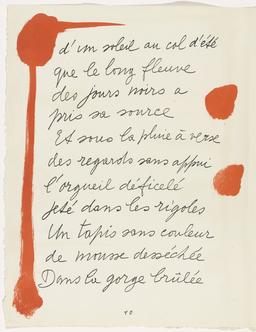 d'un soleil au col d'été
que le long fleuve
des jours noirs a
pris sa source
Et sous la pluie à verse
des regards sans appui
l'orgueil déficelé
jeté dans les rigoles
Un tapis sans couleur
de mousse desséchée
Dans la gorge brûlée
40